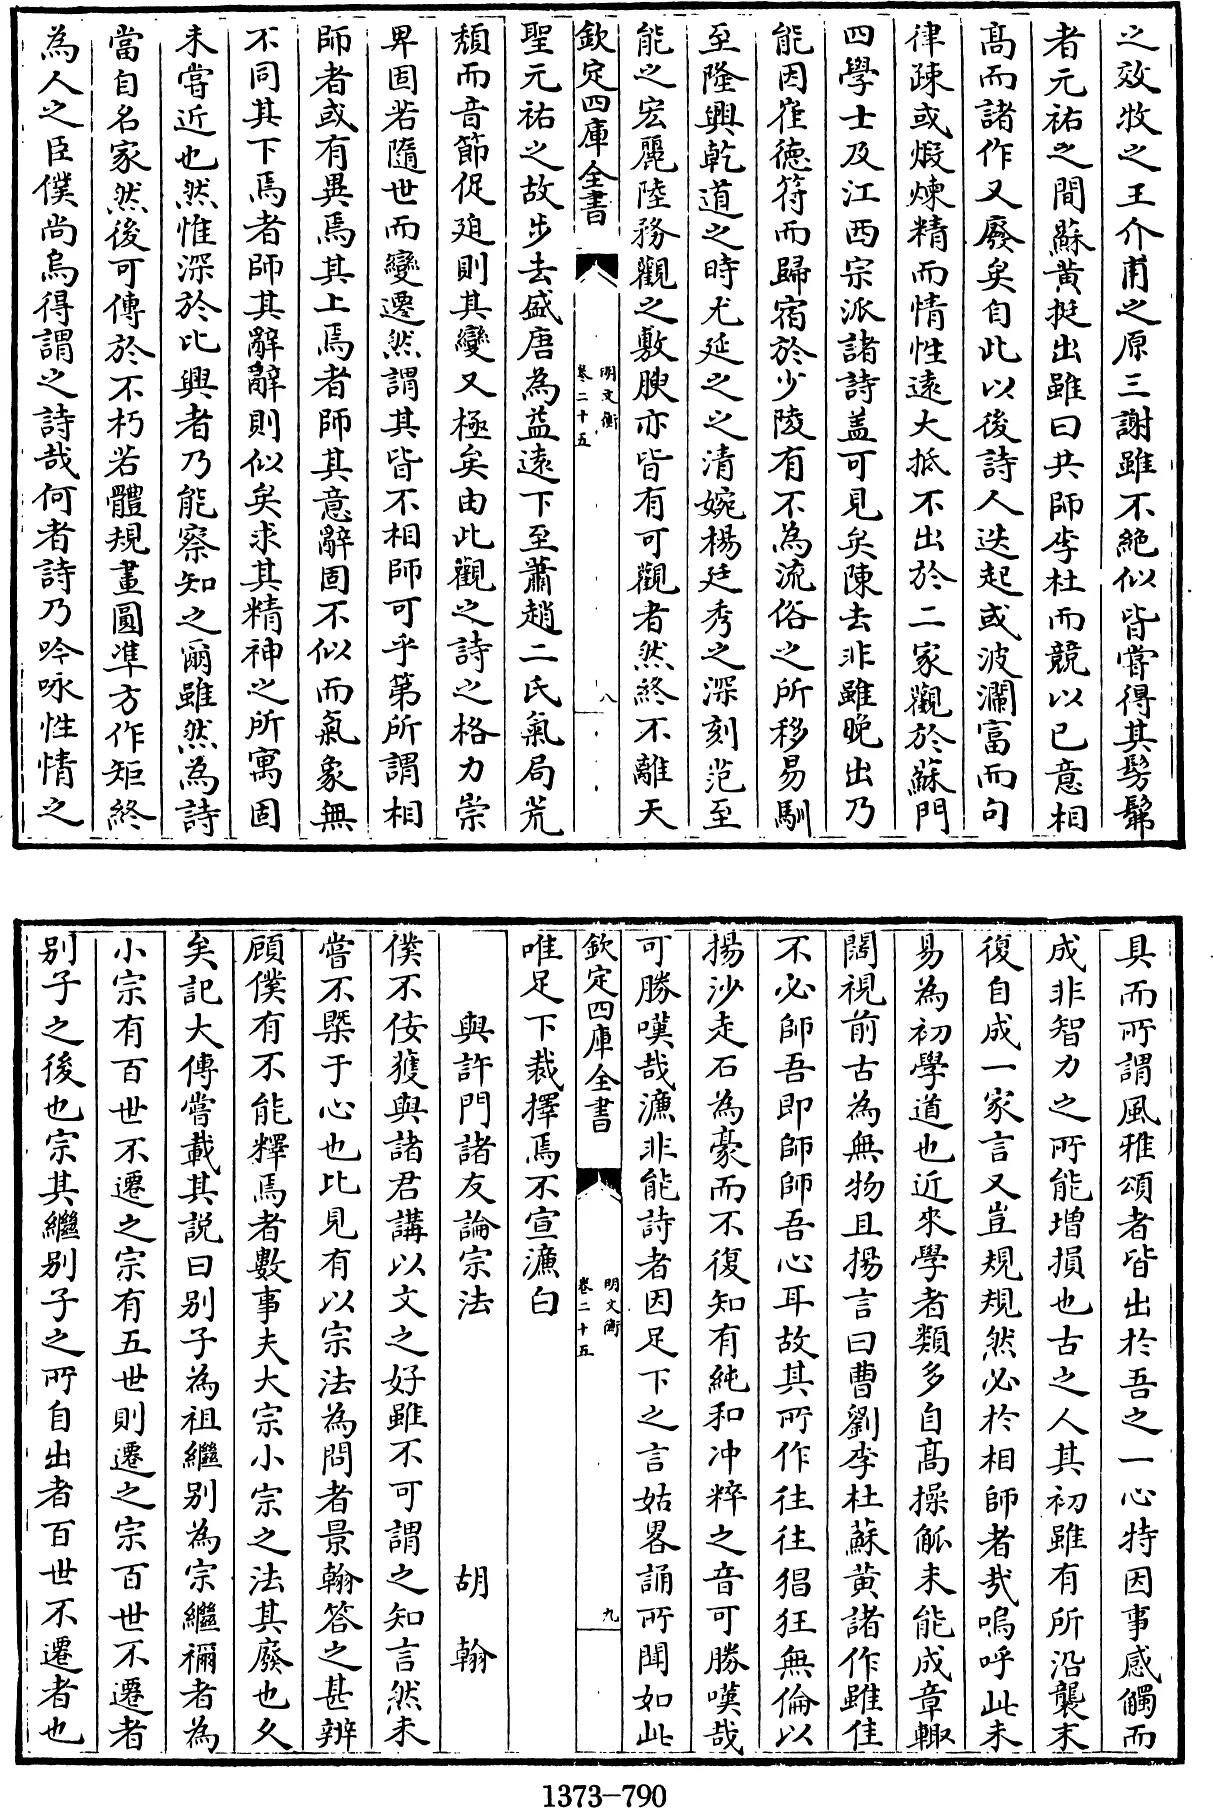 之效牧之王介甫之原三謝雖不絶似皆嘗得其髣髴
者元祐之間蘇黄挺出雖曰共師李杜而競以已意相
髙而諸作又廢矣自此以後詩人迭起或波瀾富而句
律疎或煅煉精而情性遠大抵不出於二家觀於蘇門
四學士及江西宗派諸詩蓋可見矣陳去非雖晚出乃
能因崔徳符而歸宿於少陵有不為流俗之所移易馴
至隆興乾道之時尤延之之清婉楊廷秀之深刻范至
能之宏麗陸務觀之敷腴亦皆有可觀者然終不離天
欽定四庫全書 明文衡 卷二十五 八
聖元祐之故步去盛唐為益遠下至蕭趙二氏氣局荒
頽而音節促廹則其變又極矣由此觀之詩之格力崇
卑固若隨世而變遷然謂其皆不相師可乎第所謂相
師者或有異焉其上焉者師其意辭固不似而氣象無
不同其下焉者師其辭辭則似矣求其精神之所寓固
未嘗近也然惟深於比興者乃能察知之爾雖然為詩
當自名家然後可傳於不朽若體規畫圓凖方作矩終
為人之臣僕尚烏得謂之詩哉何者詩乃吟咏性情之
具而所謂風雅頌者皆出於吾之一心特因事感觸而
成非智力之所能增損也古之人其初雖有所沿襲末
復自成一家言又豈規規然必於相師者哉嗚呼此未
易為初學道也近來學者類多自髙操觚未能成章輙
闊視前古為無物且揚言曰曹劉李杜蘇黄諸作雖佳
不必師吾即師師吾心耳故其所作往往猖狂無倫以
揚沙走石為豪而不復知有純和冲粹之音可勝嘆哉
可勝嘆哉濂非能詩者因足下之言姑畧誦所聞如此
欽定四庫全書 明文衡 卷二十五 九
唯足下裁擇焉不宣濂白
與許門諸友論宗法 胡翰
僕不佞獲與諸君講以文之好雖不可謂之知言然未
嘗不槩于心也比見有以宗法為問者景翰答之甚辨
顧僕有不能釋焉者數事夫大宗小宗之法其廢也久
矣記大傳嘗載其説曰别子為祖繼别為宗繼禰者為
小宗有百世不遷之宗有五世則遷之宗百世不遷者
别子之後也宗其繼别子之所自出者百世不遷者也
1373-790